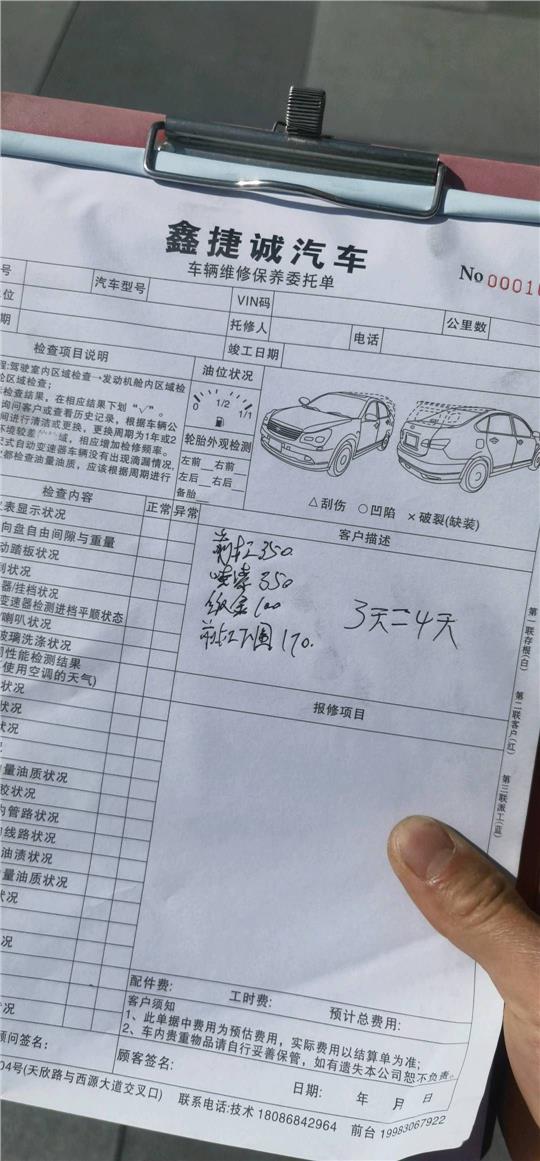 鑫捷诚汽车
车辆维修保养委托单
No 00010
号 汽车型号 VIN码 公里数
位 托修人 电话
期 竣工日期
检查项目说明
程:驾驶室内区域检查→发动机舱内区域检
轮区域检查;
检查结果，在相应结果下划“√”。
询问客户或查看历史记录，根据车辆公
间进行清洁或更换，更换周期为1年或2
环境较差 域，相应增加检修频率。
式自动变速器车辆没有出现滴漏情况,
都检查油量油质，应该根据周期进行
油位状况
0 1/2 1/1
轮胎外观检测
左前 右前
左后 右后
备胎
△刮伤 ○凹陷 ×破裂(缺装)
检查内容 正常 异常
表显示状况
向盘自由间隙与重量
动踏板状况
刮状况
器/挂档状况
变速器检测进档平顺状态
喇叭状况
玻璃洗涤状况
性能检测结果
使用空调的天气)
状况
状况
状况
量油质状况
胶状况
内管路状况
线路状况
油渍状况
量油质状况
状况
况
状况
客户描述
前杠350
喷漆350
钣金100
前杠下围170.
3天二4天
报修项目
第一联存根(白)
第二联客户(红)
第三联派工(蓝)
配件费: 工时费: 预计总费用:
客户须知
1、此单据中费用为预估费用，实际费用以结算单为准;
2、车内贵重物品请自行妥善保管，如有遗失本公司恕不负责。
顾问签名: 顾客签名: 日期: 年 月 日
04号(天欣路与西源大道交叉口) 联系电话:技术 18086842964 前台 19983067922